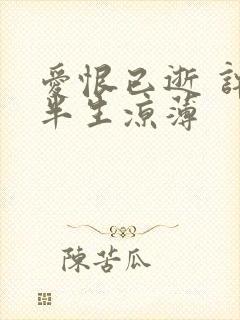 愛恨已逝
半生涼薄
陳苦瓜